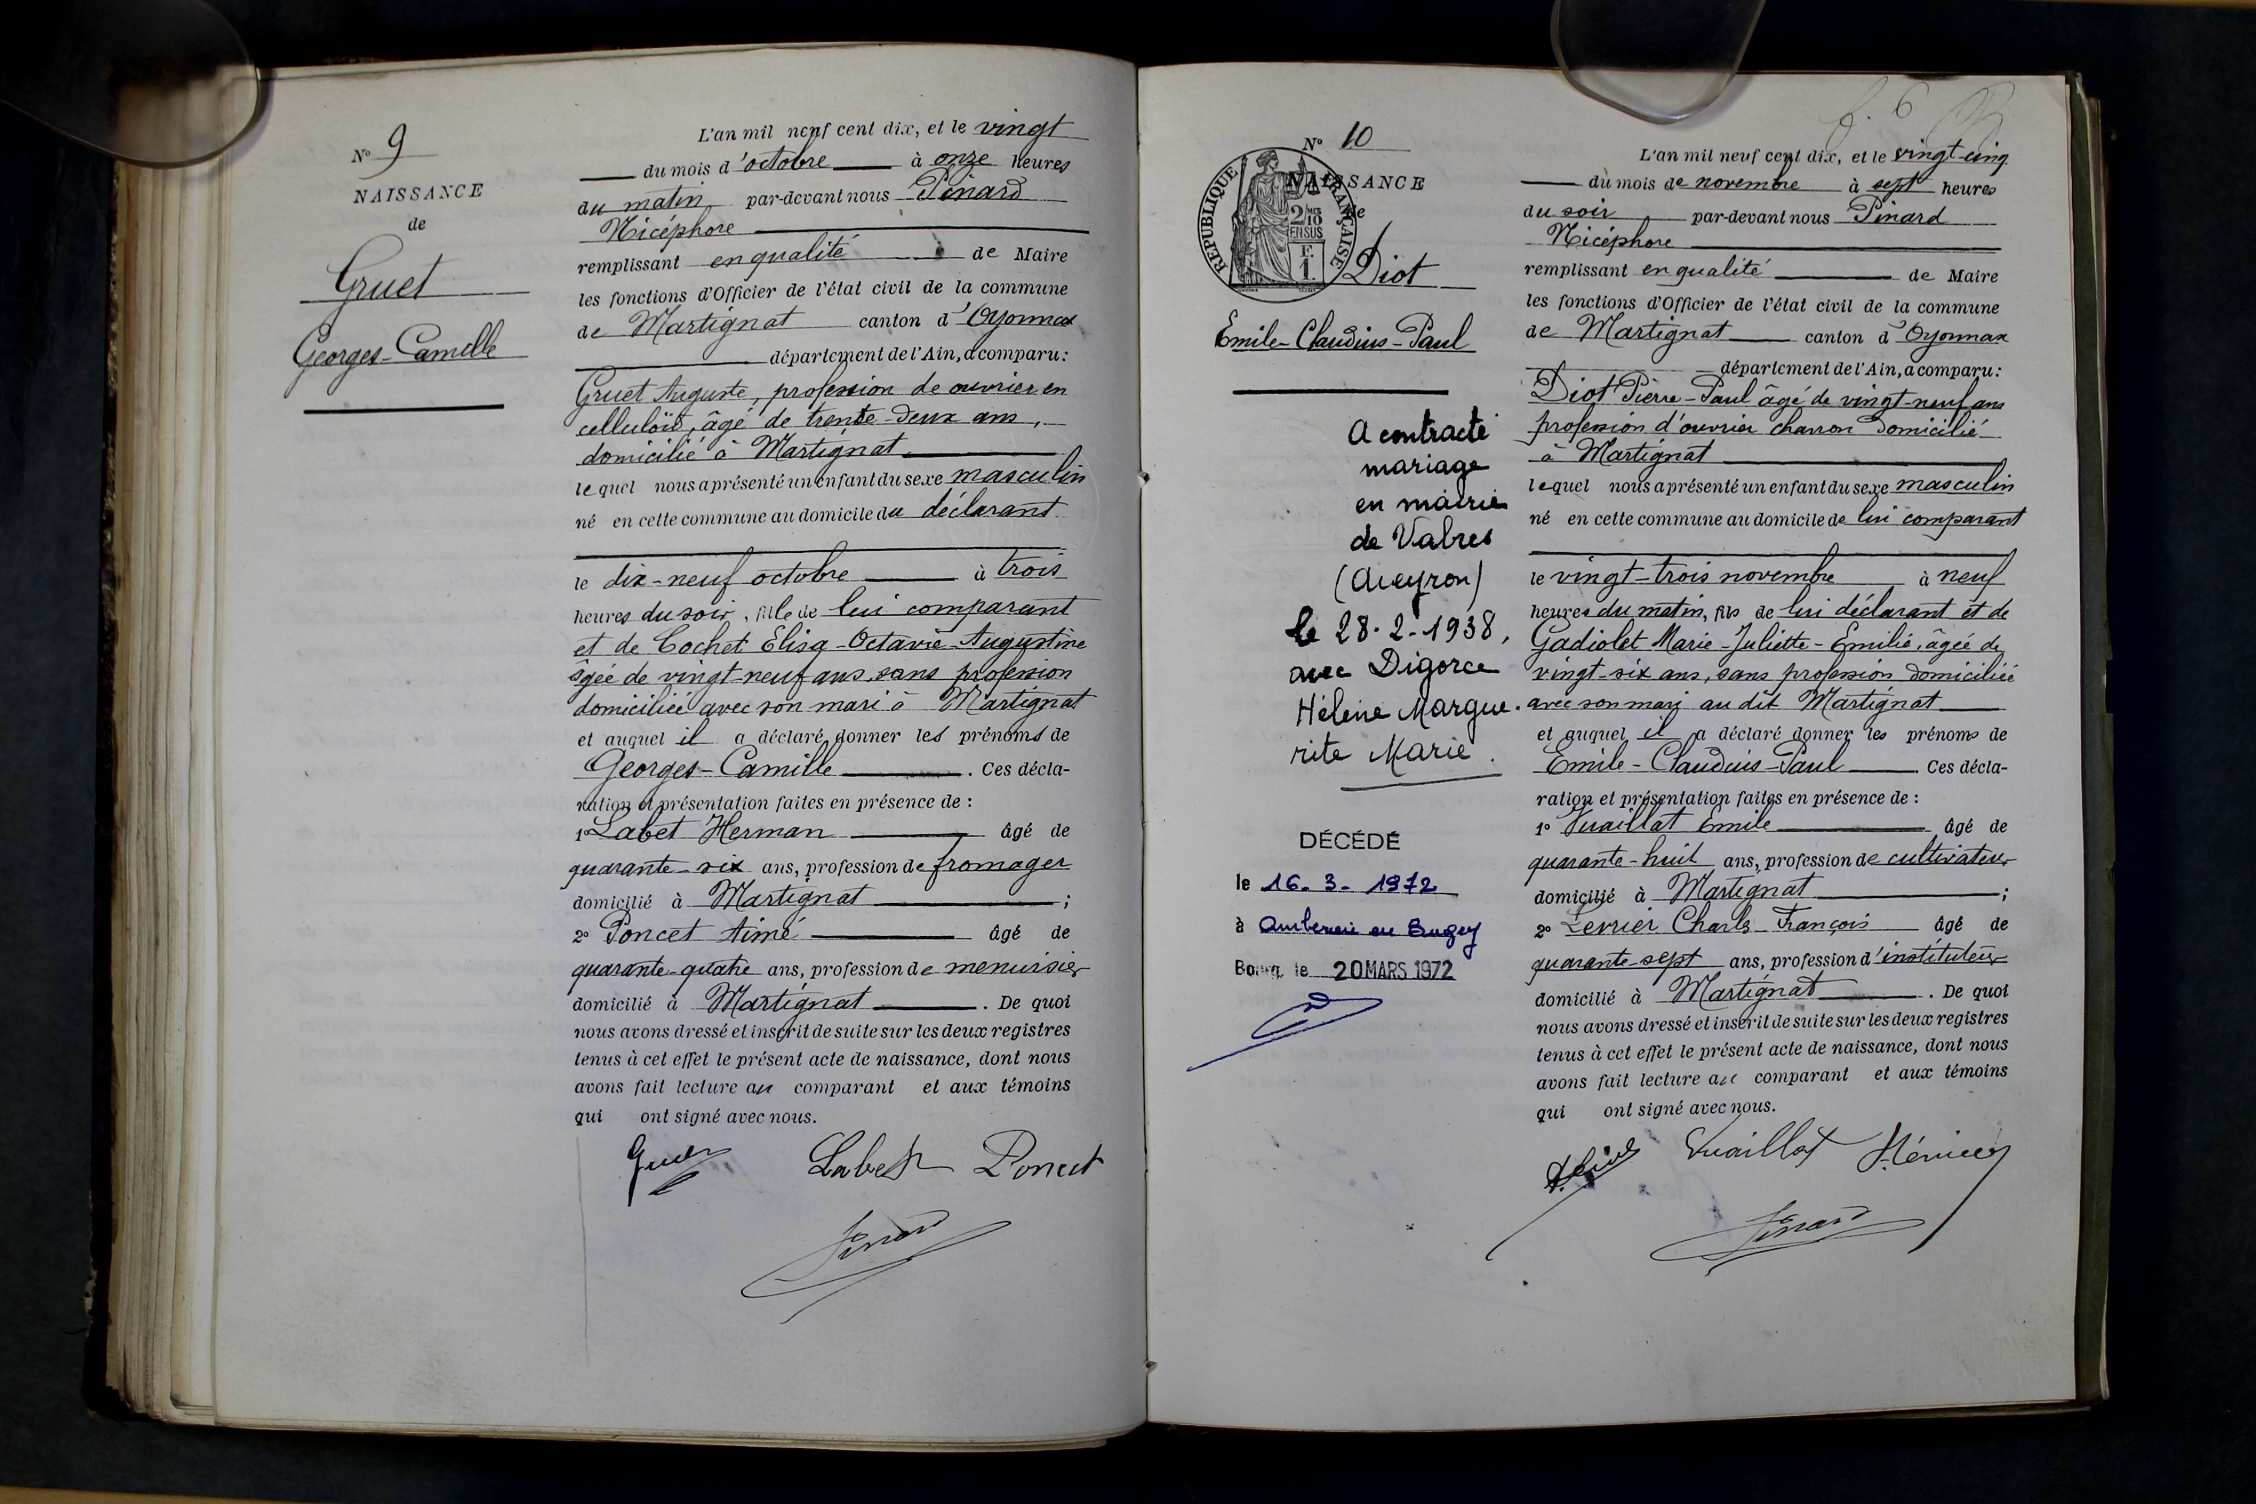 N° 9
NAISSANCE
de
Gruet
Georges-Camille
L'an mil neuf cent dix, et le vingt
du mois d'octobre à onze heures
du matin par-devant nous Pinard
Nicéphore
remplissant en qualité de Maire
les fonctions d'Officier de l'état civil de la commune
de Martignat canton d'Oyonnax
département de l'Ain, a comparu:
Gruet Auguste, profession de ouvrier en
celluloïd, âgé de trente-deux ans,
domicilié à Martignat
lequel nous a présenté un enfant du sexe masculin
né en cette commune au domicile du déclarant
le dix-neuf octobre à trois
heures du soir, fils de lui comparant
et de Cochet Elisa-Octavie-Augustine
âgée de vingt-neuf ans, sans profession
domiciliée avec son mari à Martignat
et auquel il a déclaré donner les prénoms de
Georges-Camille. Ces décla-
ration et présentation faites en présence de :
1° Labet Herman âgé de
quarante-six ans, profession de fromager
domicilié à Martignat ;
2° Poncet Aimé âgé de
quarante-quatre ans, profession de menuisier
domicilié à Martignat. De quoi
nous avons dressé et inscrit de suite sur les deux registres
tenus à cet effet le présent acte de naissance, dont nous
avons fait lecture au comparant et aux témoins
qui ont signé avec nous.
Gruet Labet Poncet
Pinard
f. 6
N° 10
NAISSANCE
de
REPUBLIQUE FRANÇAISE
2/10 EN SUS
F. 1.
Diot
Emile-Claudius-Paul
A contracté
mariage
en mairie
de Vabres
(Aveyron)
le 28-2-1938,
avec Digorce
Hélène Margue-
rite Marie.
DÉCÉDÉ
le 16-3-1972
à Ambérieu en Bugey
Bourg, le 20 MARS 1972
L'an mil neuf cent dix, et le vingt-cinq
du mois de novembre à sept heures
du soir par-devant nous Pinard
Nicéphore
remplissant en qualité de Maire
les fonctions d'Officier de l'état civil de la commune
de Martignat canton d'Oyonnax
département de l'Ain, a comparu:
Diot Pierre-Paul âgé de vingt-neuf ans
profession d'ouvrier charron domicilié
à Martignat
lequel nous a présenté un enfant du sexe masculin
né en cette commune au domicile de lui comparant
le vingt-trois novembre à neuf
heures du matin, fils de lui déclarant et de
Gadiolet Marie-Juliette-Emilie, âgée de
vingt-six ans, sans profession domiciliée
avec son mari au dit Martignat
et auquel il a déclaré donner les prénoms de
Emile-Claudius-Paul Ces décla-
ration et présentation faites en présence de :
1° Vuaillat Emile âgé de
quarante-huit ans, profession de cultivateur
domicilié à Martignat ;
2° Levrier Charles François âgé de
quarante-sept ans, profession d'instituteur
domicilié à Martignat. De quoi
nous avons dressé et inscrit de suite sur les deux registres
tenus à cet effet le présent acte de naissance, dont nous
avons fait lecture au comparant et aux témoins
qui ont signé avec nous.
Vuaillat
Pinard